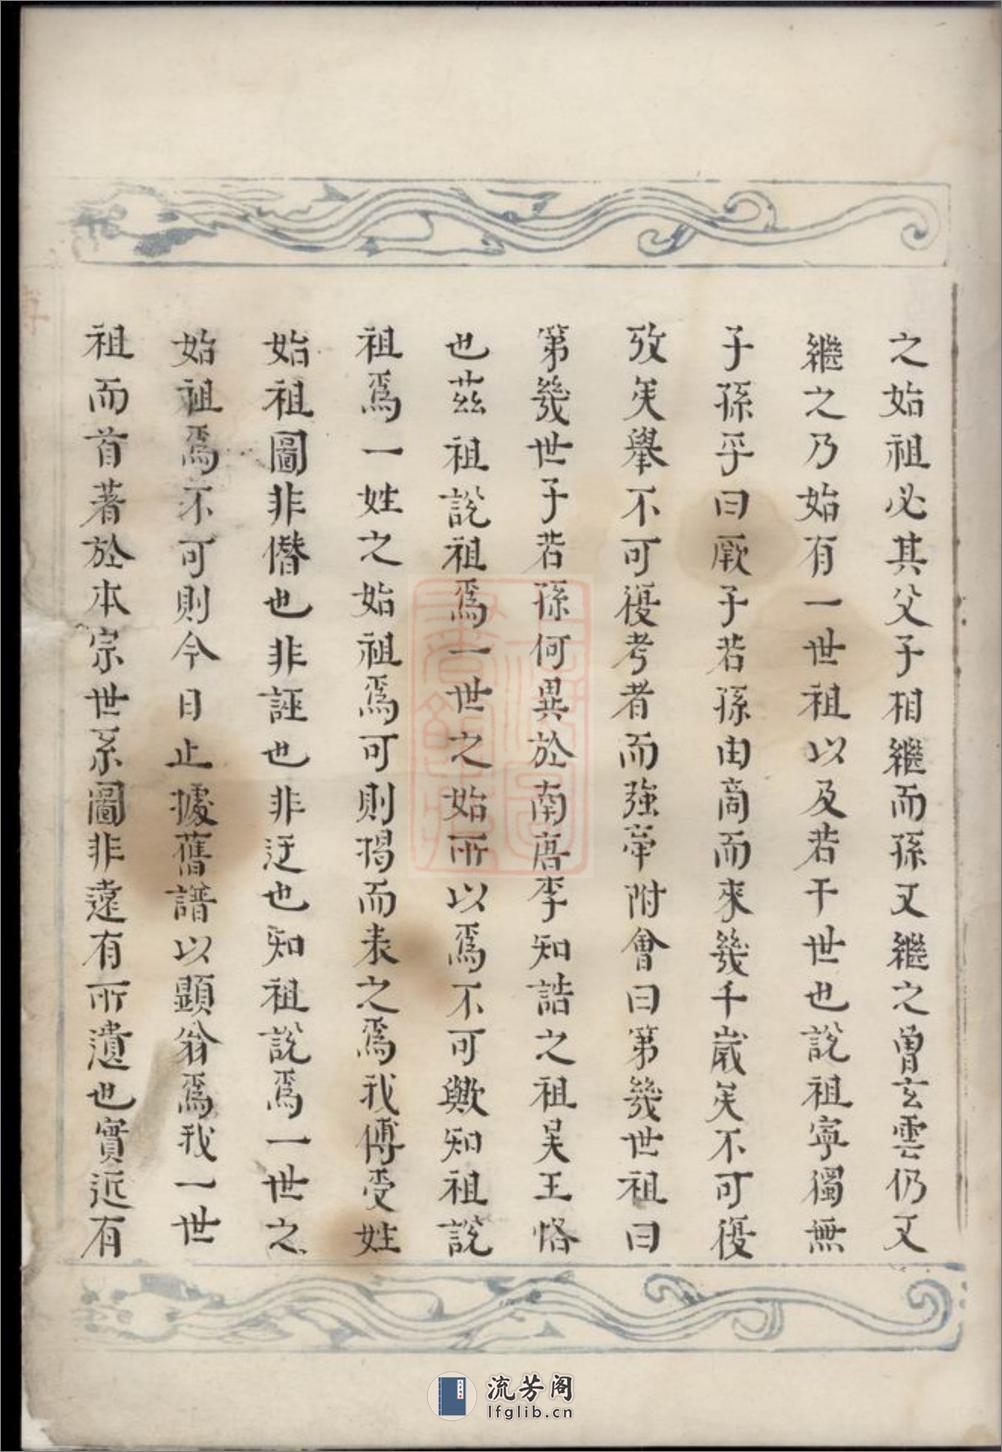 之始祖必其父子相繼而孫又繼之曾玄雲仍又
繼之乃始有一世祖以及若干世也說祖寧獨無
子孫乎曰厥子若孫由商而來幾千歲矣不可復
攷矣舉不可復考者而強牽附會曰第幾世祖曰
第幾世子若孫何異於南唐李知誥之祖吳王恪
也茲祖說祖爲一世之始所以爲不可歟知祖說
祖爲一姓之始祖爲可則揭而表之爲我傅受姓
始祖圖非僭也非誣也非迂也知祖說爲一世之
始祖爲不可則今日止據舊譜以顯翁爲我一世
祖而首著於本宗世系圖非遠有所遺也實近有
流芳阁
lfglib.cn